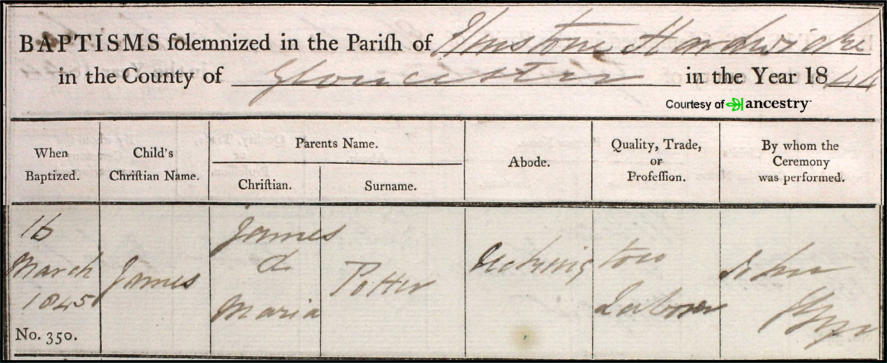 BAPTISMS solemnized in the Parish of Elmstone Hardwicke
in the County of Gloucester in the Year 1844
Courtesy of ancestry
When Baptized.
Child's Christian Name.
Parents Name.
Christian.
Surname.
Abode.
Quality, Trade, or Profession.
By whom the Ceremony was performed.
16
March
1845
No. 350.
James
James
&
Maria
Potter
Labourer
John